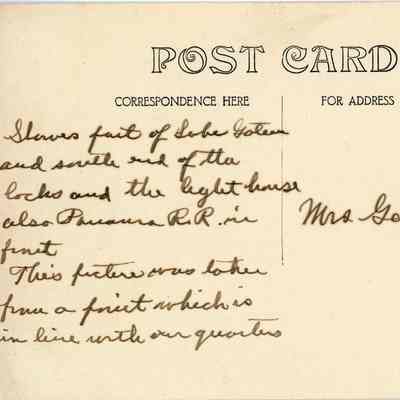 POST CARD
CORRESPONDENCE HERE
FOR ADDRESS
Shows part of Lake Gatun
and south end of the
locks and the light house
also Panama R.R. in
front
This picture was taken
from a point which is
in line with our quarters
Mrs Go